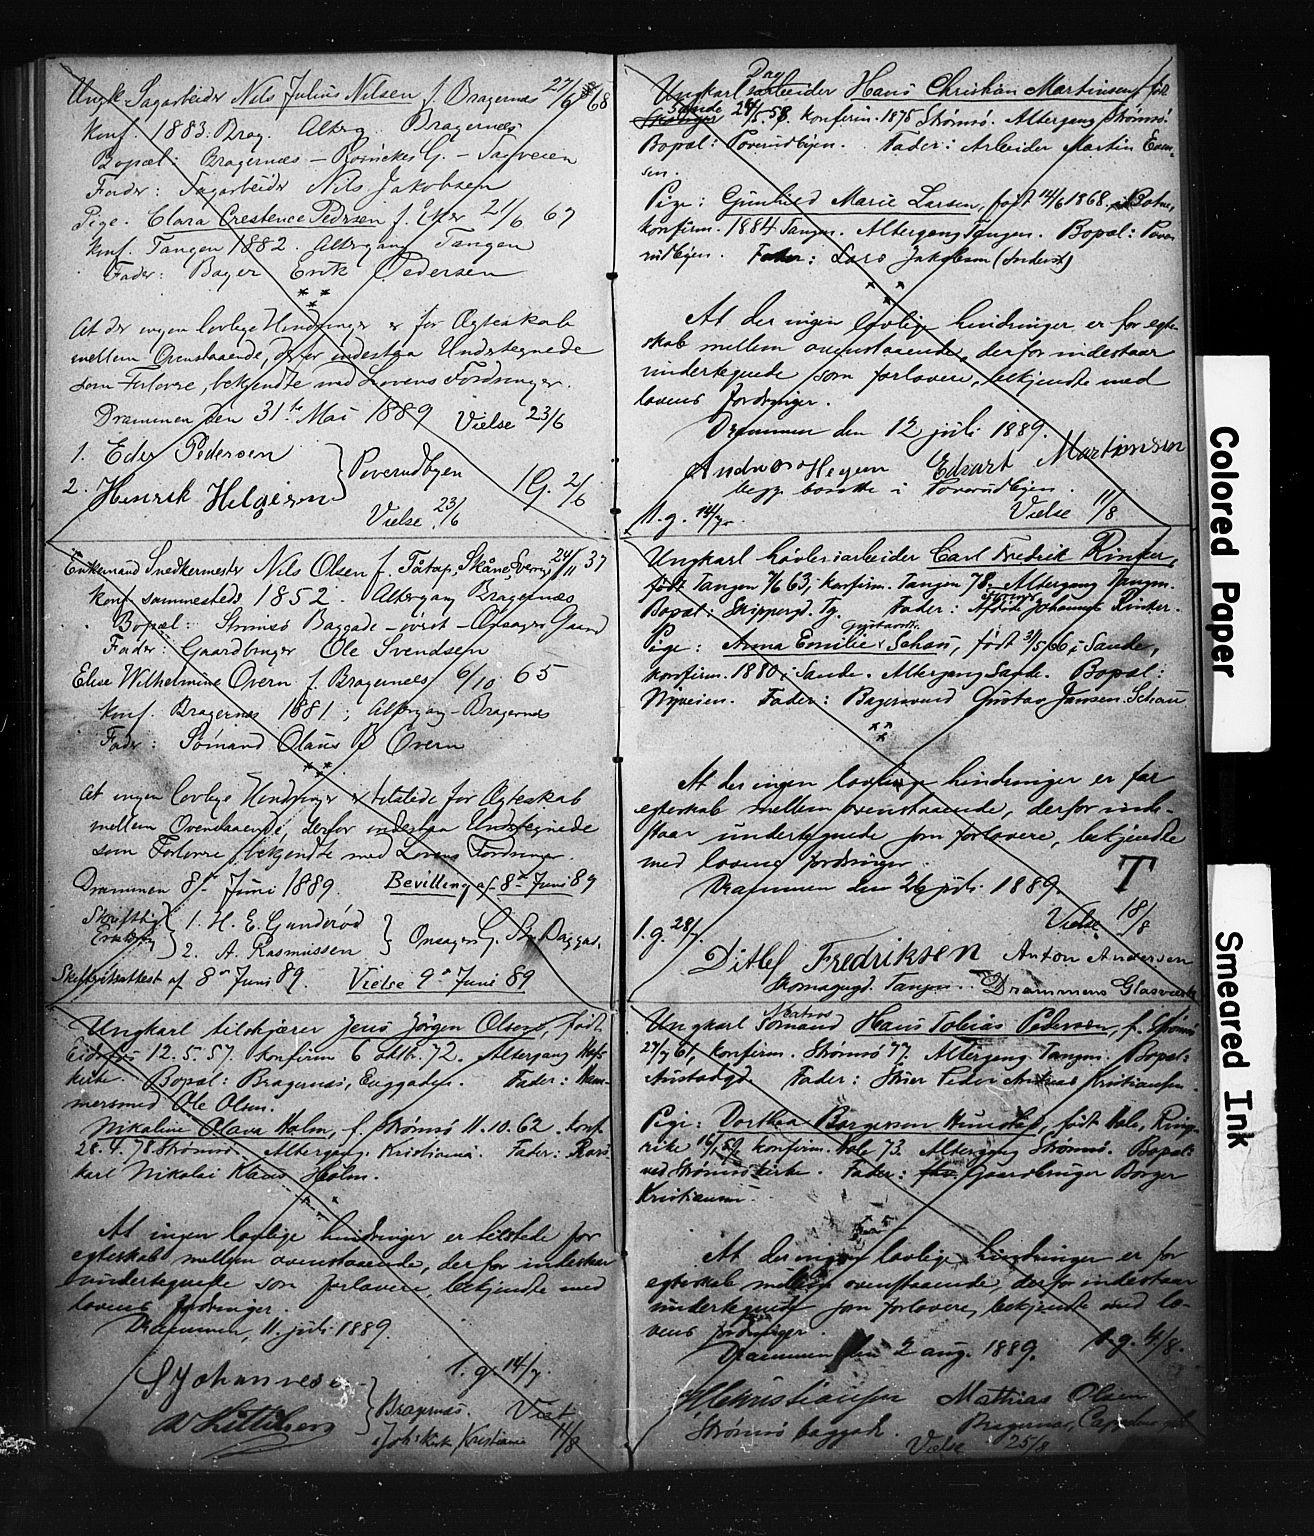 Ungk. Sagarbeider Nils Julius Nilsen f. Bragernæs 27/6 68
Konf. 1883. Brag. Altrg. Bragernæs
Bopæl: Bragernæs – G. – Sagveien
Fader: Sagarbeider Nils Jakobsen
Pige. Clara Crestence Pedersen f. 21/6 67
Konf. Tangen 1882. Altergang Tangen
Fader: Bager Erik Pedersen
At der ingen lovlige Hindringer er for Ægteskab
mellem Ovenstaaende, derfor indestaa Undertegnede
som Forlovere, bekjendte med Lovens Fordringer.
Drammen den 31te Mai 1889 Vielse 23/6
1. Eder Pedersen
2. Henrik Helgesen } Poverudbyen 1 G. 2/6
Vielse 23/6
Enkemand Snedkermester Nils Olsen f. Skåne, Sverig, 24/11 37
Konf sammesteds 1852. Altergang Bragernæs
Bopæl: Strømsø Baggade – øvret – Opsager Gaard
Fader: Gaardbruger Ole Svendsen
Elise Wilhelmine Overn f. Bragernæs 6/10 65
Konf. Bragernæs 1881; Altergang – Bragernæs
Fader: Sømand Olaus P Overn
At ingen lovlige Hindringer er tilstede for Ægteskab
mellem Ovenstaaende, derfor indestaa Undertegnede
som Forlovere, bekjendte med Lovens Fordringer.
Drammen 8de Juni 1889. Bevilling af 8de Juni 89
Skriftlig { 1. H. E. Gunderød
2. A. Rasmussen } Opsager G. Str. Baggad.
Skifteattest af 8de Juni 89. Vielse 9de Juni 89
Ungkarl tilskjærer Jens Jörgen Olsen, født
12.5.57. Konfirm 6 oktb. 72. Altergang Hofs
kirke. Bopæl: Bragernæs, Fader: Ham-
mersmed Ole Olsen.
Nikoline Olava Holm, f. Strømsö 11.10.62. konf.
28.4.78 Strømsö. Altergang: Kristiania. Fader: Rors-
karl Nikolai Klaus Holm.
At ingen lovlige hindringer er tilstede for
egteskab mellem ovenstaaende, derfor indestaar
undertegnede som forlovere, bekjendte med
lovens fordringer.
Drammen, 11. juli 1889.
1. g. 14/7.
S Johannesen
} Bragernæs, Viet
Joh. Kirke, Kristiania 11/8
Dag
Ungkarl arbeider Hans Christian Martinsen, født
Sande 24/5.58. konfirm. 1875 Strömsö. Altergang Strömsö.
Bopæl: Poverudbyen. Fader: Arbeider Martin Even-
sen.
Pige: Gunhild Marie Larsen, født 14/6 1868. i Botne,
konfirm. 1884 Tangen. Altergang Tangen. Bopæl: Pove-
rudbyen. Fader: Lars Jakobsen (Inderst)
At der ingen lovlige hindringer er for egte-
skab mellem ovenstaaende, derfor indestaar
undertegnede som forlovere, bekjendte med
lovens fordringer.
Drammen den 12 juli 1889.
Andreas Hegum Edvart Martinsen
begge boende i Poverudbyen.
1. g. 14/7. Vielse 11/8
Ungkarl hövleriarbeider Carl Fredrik Rinker,
født Tangen 7/6 63; konfirm. Tangen 78. Altergang Tangen.
Bopæl: Skippergd. Tg. Fader: Afdöde Johannes Rinker.
Gustavsd.
Pige: Anna Emilie Schau, født 31/5 66 i Sande,
konfirm. 1880 i Sande. Altergang Sande. Bopæl:
Nyveien. Fader: Bagersvend Gustav Jansen Schau
At der ingen lovlige hindringer er for
egteskab mellem ovenstaaende, derfor inde-
staar undertegnede som forlovere, bekjendte
med lovens fordringer.
T
Drammen den 26 juli 1889
1. g. 28/7. Vielse 18/8
Ditlef Fredriksen Anton Andersen
Skomagergd. Tangen. Drammens Glasværk
Matros
Ungkarl Sömand Hans Tobias Pedersen, f. Strömsö
27/7 61, konfirm. Strömsö 77. Altergang Tangen. Bopæl:
Austadgd Fader: Peder Andreas Kristiansen.
Pige: Dorthea Borgersen Hunstad, født Hole, Ringe-
rike 16/1 59, konfirm. Hole 73. Altergang Strömsö. Bopæl:
ved Strömsö kirke. Fader: Gaardbruger Borger
Kristiansen.
At der ingen lovlige hindringer er for
egteskab mellem ovenstaaende, derfor indestaar
undertegnede som forlovere, bekjendte med lo-
vens fordringer.
Drammen den 2 aug. 1889. 1. g. 4/8.
H Christiansen Mathias Olsen
Strömsö baggade. Bragernæs,
Vielse 25/8
Colored Paper
Smeared Ink